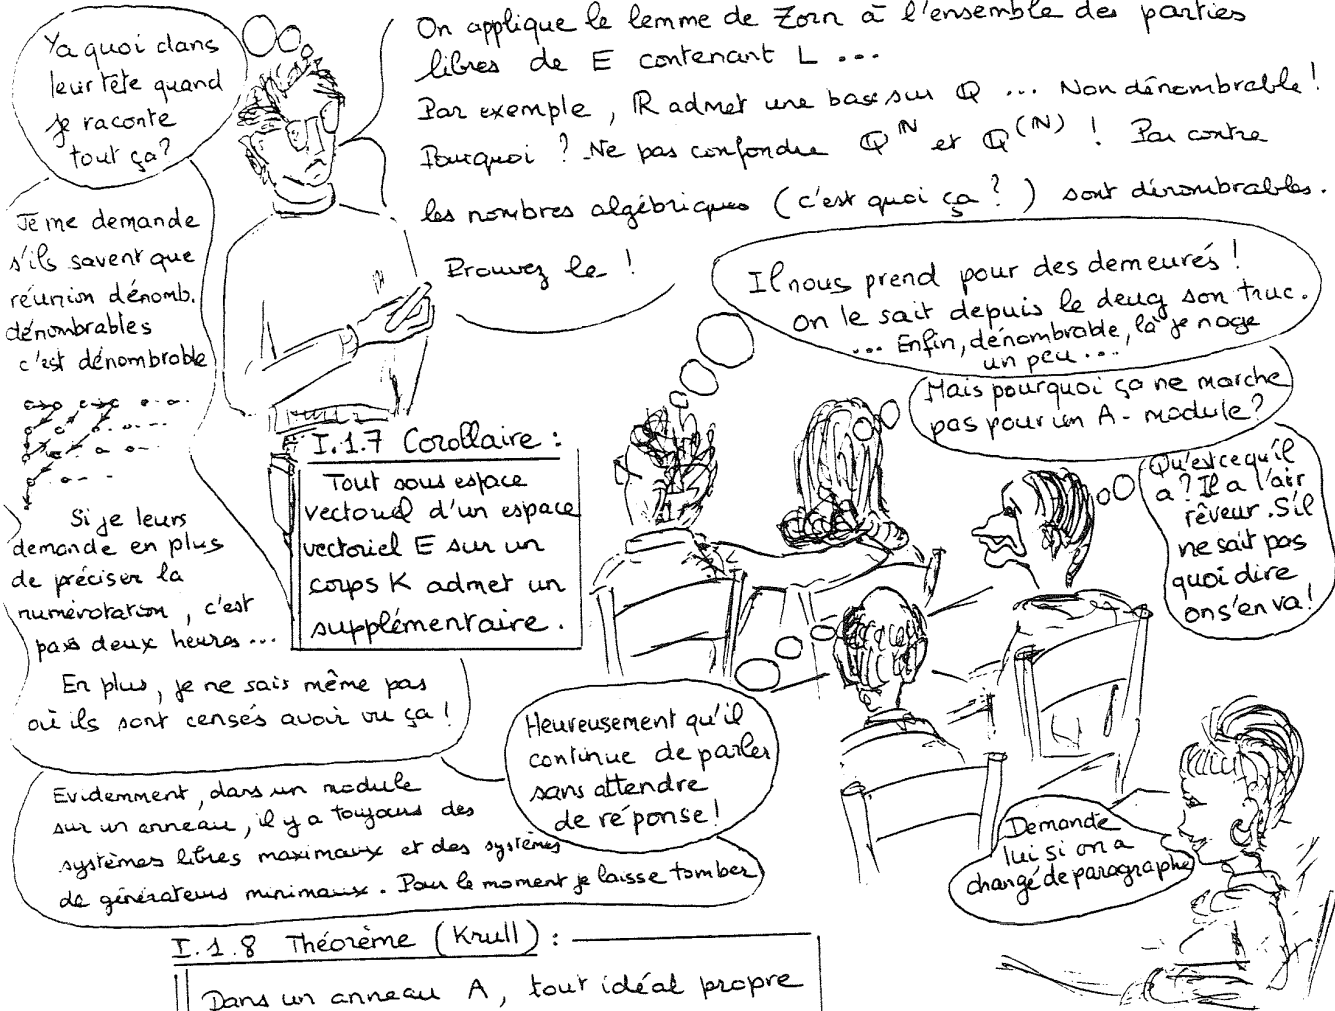 Ya quoi dans
leur tête quand
je raconte
tout ça?
On applique le lemme de Zorn à l'ensemble des parties
libres de E contenant L ...
Par exemple, ℝ admet une base sur ℚ ... Non dénombrable !
Pourquoi ? Ne pas confondre ℚ^ℕ et ℚ^(ℕ) ! Par contre
les nombres algébriques (c'est quoi ça ?) sont dénombrables.
Prouvez le !
Je me demande
s'ils savent que
réunion dénomb.
dénombrables
c'est dénombrable
Si je leurs
demande en plus
de préciser la
numérotation, c'est
pas deux heures ...
En plus, je ne sais même pas
où ils sont censés avoir vu ça !
Il nous prend pour des demeurés !
on le sait depuis le deug son truc.
... Enfin, dénombrable, là je nage
un peu ...
Mais pourquoi ça ne marche
pas pour un A-module ?
Qu'est ce qu'il
a ? Il a l'air
rêveur. S'il
ne sait pas
quoi dire
on s'en va !
I.1.7 Corollaire :
Tout sous espace
vectoriel d'un espace
vectoriel E sur un
corps K admet un
supplémentaire.
Heureusement qu'il
continue de parler
sans attendre
de réponse !
Evidemment, dans un module
sur un anneau, il y a toujours des
systèmes libres maximaux et des systèmes
de générateurs minimaux. Pour le moment je laisse tomber
Demande
lui si on a
changé de paragraphe
I.1.8 Théorème (Krull) :
Dans un anneau A, tout idéal propre